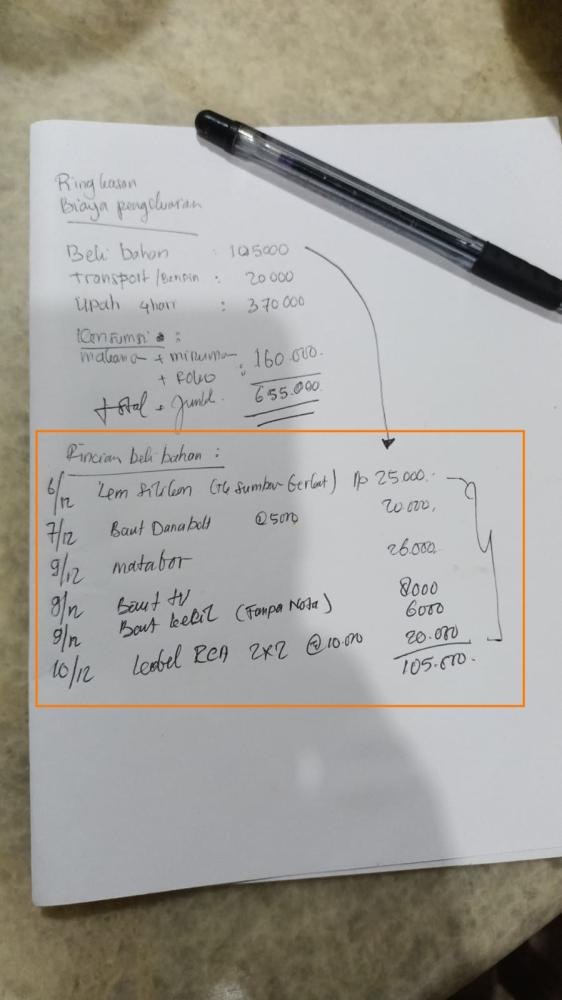 Ringkasan
Biaya pengeluaran
Beli bahan : 105000
Transport/Bensin : 20 000
Upah 4 hari : 370 000
Konsumsi :
makana + minuman
+ Roko : 160.000.
total + Jumbl. 655.000
Rincian beli bahan :
6/12 Lem silikon (Tk Sumber ) Rp 25.000.-
7/12 Baut Danabolt @5000 20.000,
9/12 matabor 26.000
8/12 Baut tv 8000
9/12 Baut kecil (Tanpa Nota) 6000
10/12 kabel RCA 2x2 @10.000 20.000
105.000.